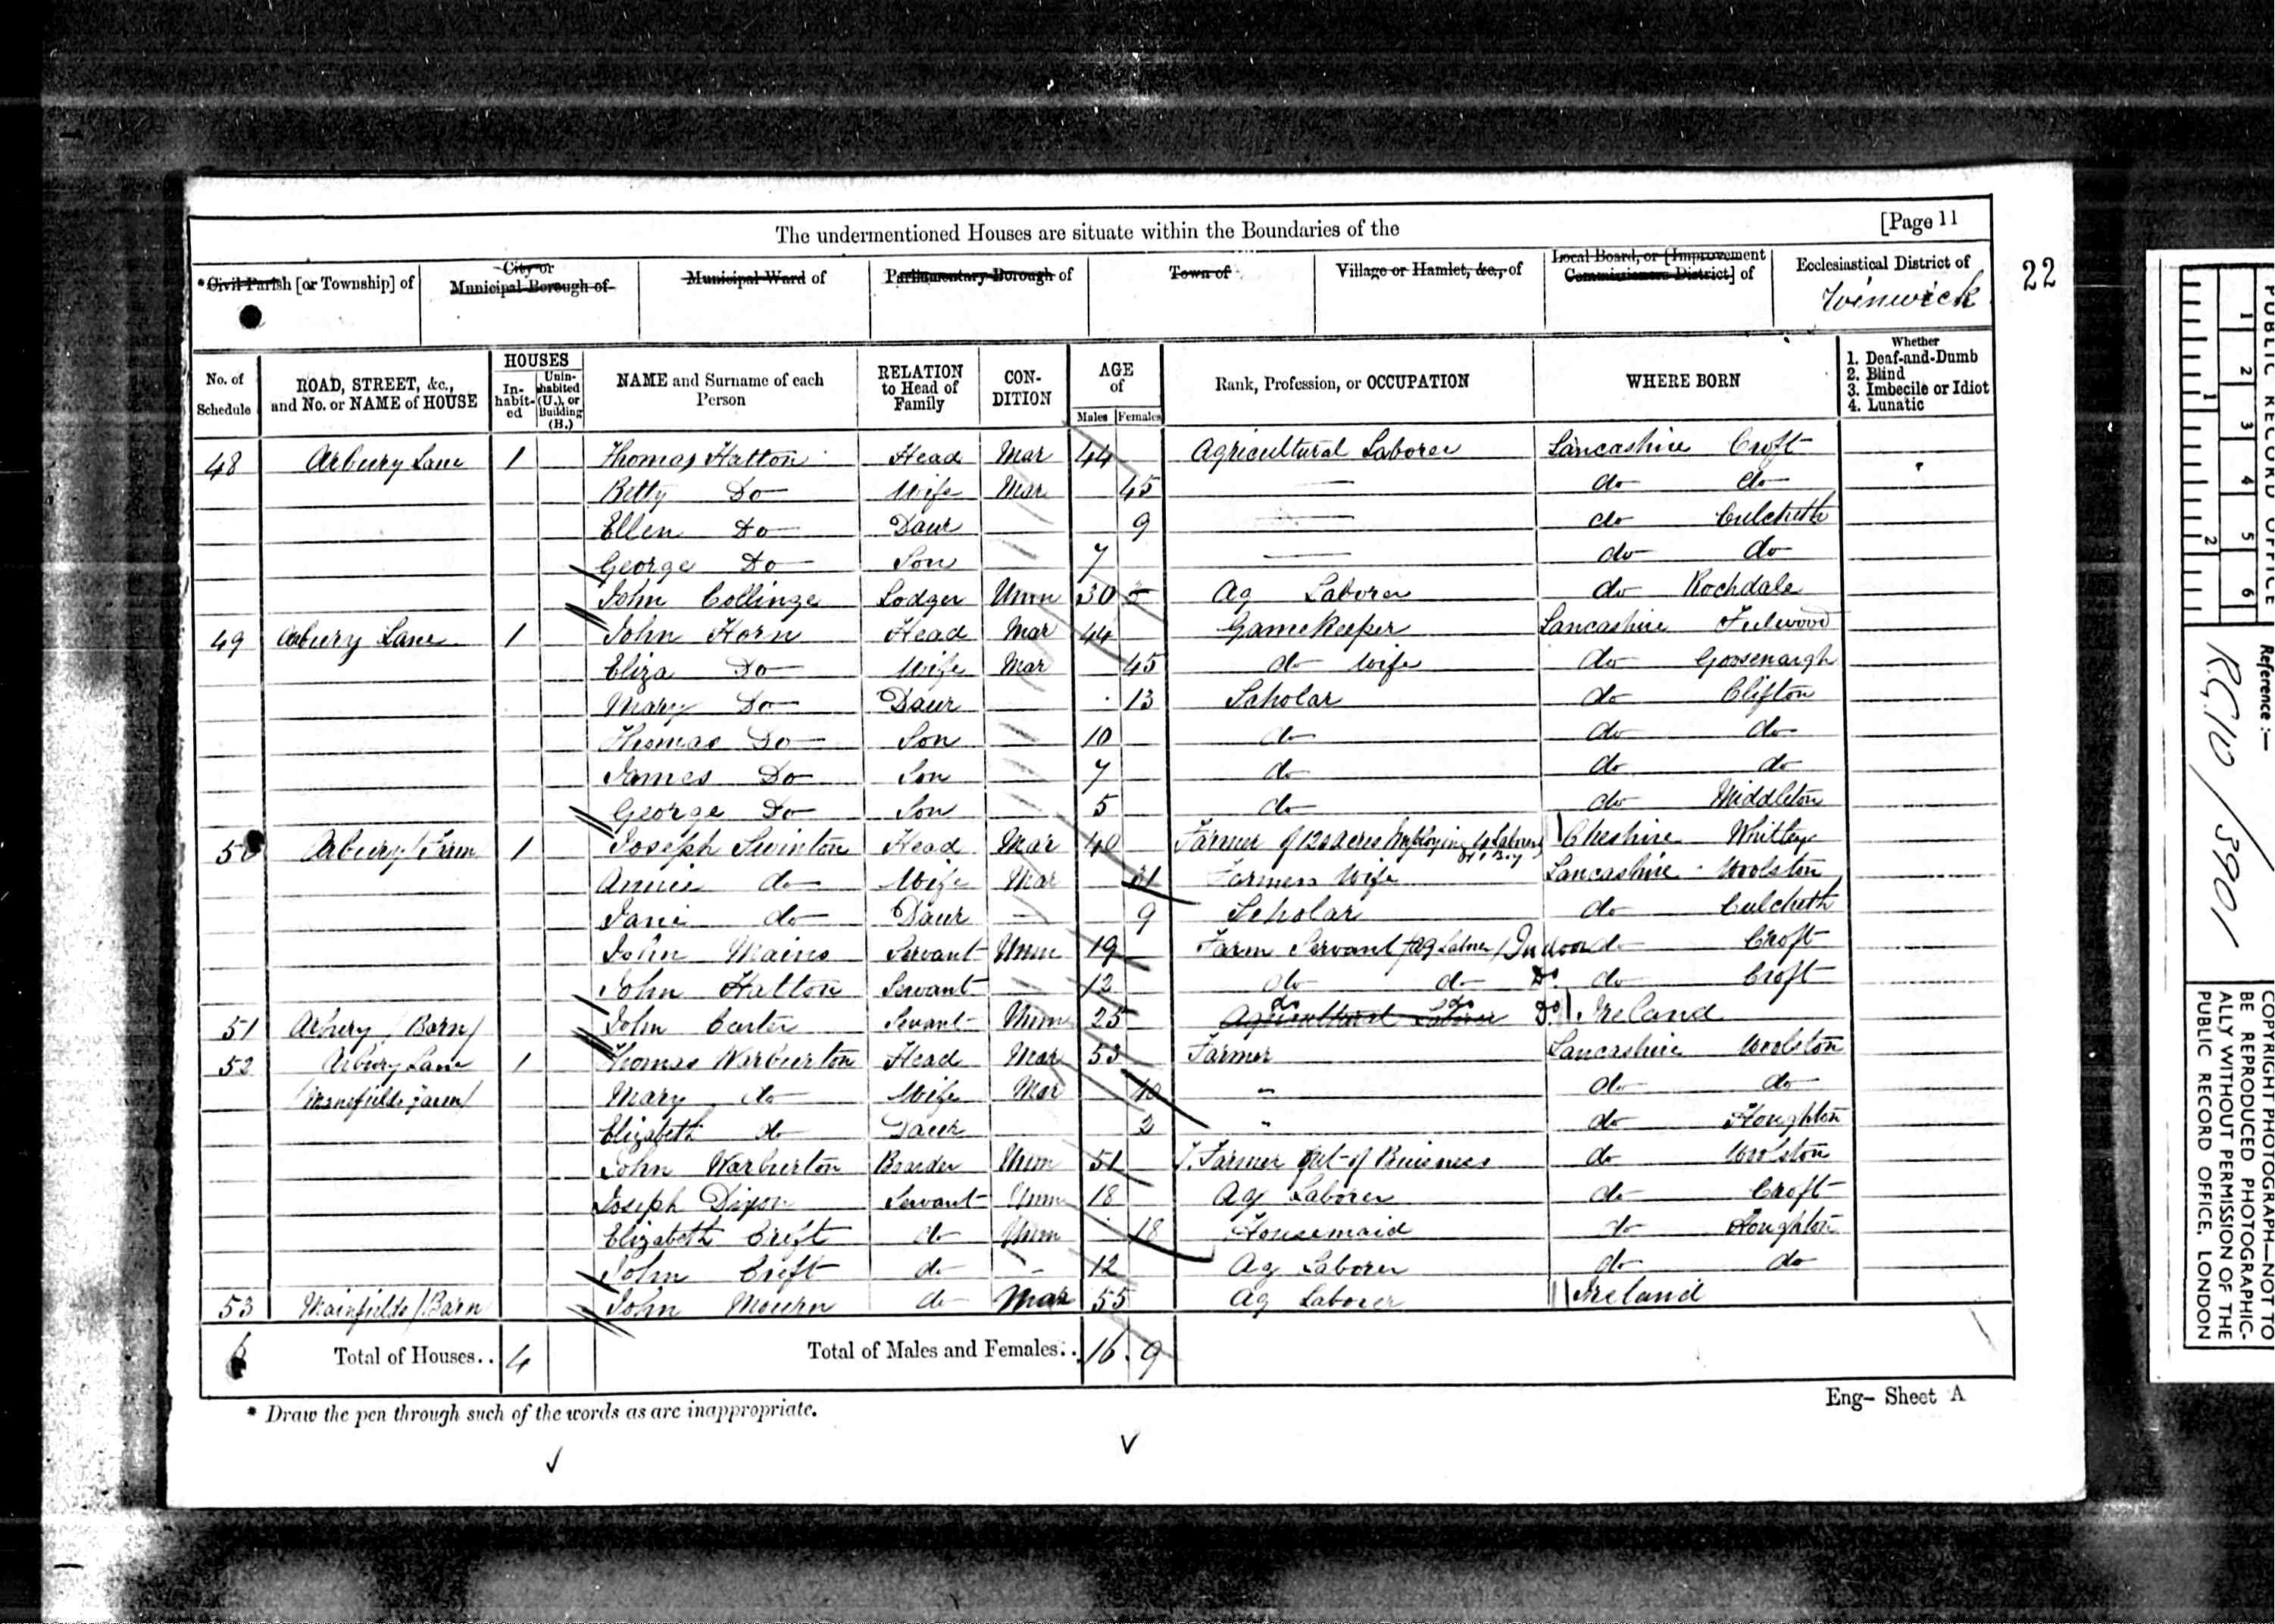 The undermentioned Houses are situate within the Boundaries of the
[Page 11
22
*Civil Parish [or Township] of
City or Municipal Borough of
Municipal Ward of
Parliamentary Borough of
Town of
Village or Hamlet, &c., of
Local Board, or [Improvement Commissioners District] of
Ecclesiastical District of
Winwick
No. of Schedule
ROAD, STREET, &c., and No. or NAME of HOUSE
HOUSES
In-habit-ed
Unin-habited (U.), or Building (B.)
NAME and Surname of each Person
RELATION to Head of Family
CON-DITION
AGE of
Males
Females
Rank, Profession, or OCCUPATION
WHERE BORN
Whether
1. Deaf-and-Dumb
2. Blind
3. Imbecile or Idiot
4. Lunatic
48 Arbury Lane 1 Thomas Hatton Head Mar 44 Agricultural Laborer Lancashire Croft
Betty Do Wife Mar 45 do do
Ellen Do Daur 9 do Culcheth
George Do Son 7 do do
John Collinge Lodger Unm 30 Ag Laborer do Rochdale
49 Arbury Lane 1 John Horn Head Mar 44 Gamekeeper Lancashire Fulwood
Eliza Do Wife Mar 45 do Wife do Goosenargh
Mary Do Daur 13 Scholar do Clifton
Thomas Do Son 10 do do do
James Do Son 7 do do do
George Do Son 5 do do Middleton
50 Arbury / Farm 1 Joseph Swinton Head Mar 40 Farmer of 120 acres Cheshire Whitley
Annie do Wife Mar 31 Farmers Wife Lancashire Woolston
Jane do Daur 9 Scholar do Culcheth
John Mains Servant Unm 19 Farm Servant / Ag Labrer / Indoor do Croft
John Hatton Servant 12 do do Do do Croft
51 Arbury / Barn / John Carter Servant Unm 25 do do Agricultural Laborer Do Ireland
52 Arbury Lane 1 Thomas Warburton Head Mar 53 Farmer Lancashire Woolston
Mary do Wife Mar 40 " do do
Elizabeth do Daur 2 " do Houghton
John Warburton Boarder Unm 51 Farmer Out of Buisness do Woolston
Joseph Dixon Servant Unm 18 Ag Laborer do Croft
Elizabeth Croft do Unm 18 Housemaid do Houghton
John Croft do - 12 Ag Laborer do do
53 Mainfields / Barn John Mourn do Mar 55 Ag Laborer Ireland
Total of Houses.. 4
Total of Males and Females.. 16 9
* Draw the pen through such of the words as are inappropriate.
Eng- Sheet A
PUBLIC RECORD OFFICE
1 2 3 4 5 6
1 2
Reference :-
R.G.10 / 3901
COPYRIGHT PHOTOGRAPH—NOT TO
BE REPRODUCED PHOTOGRAPHIC-
ALLY WITHOUT PERMISSION OF THE
PUBLIC RECORD OFFICE, LONDON